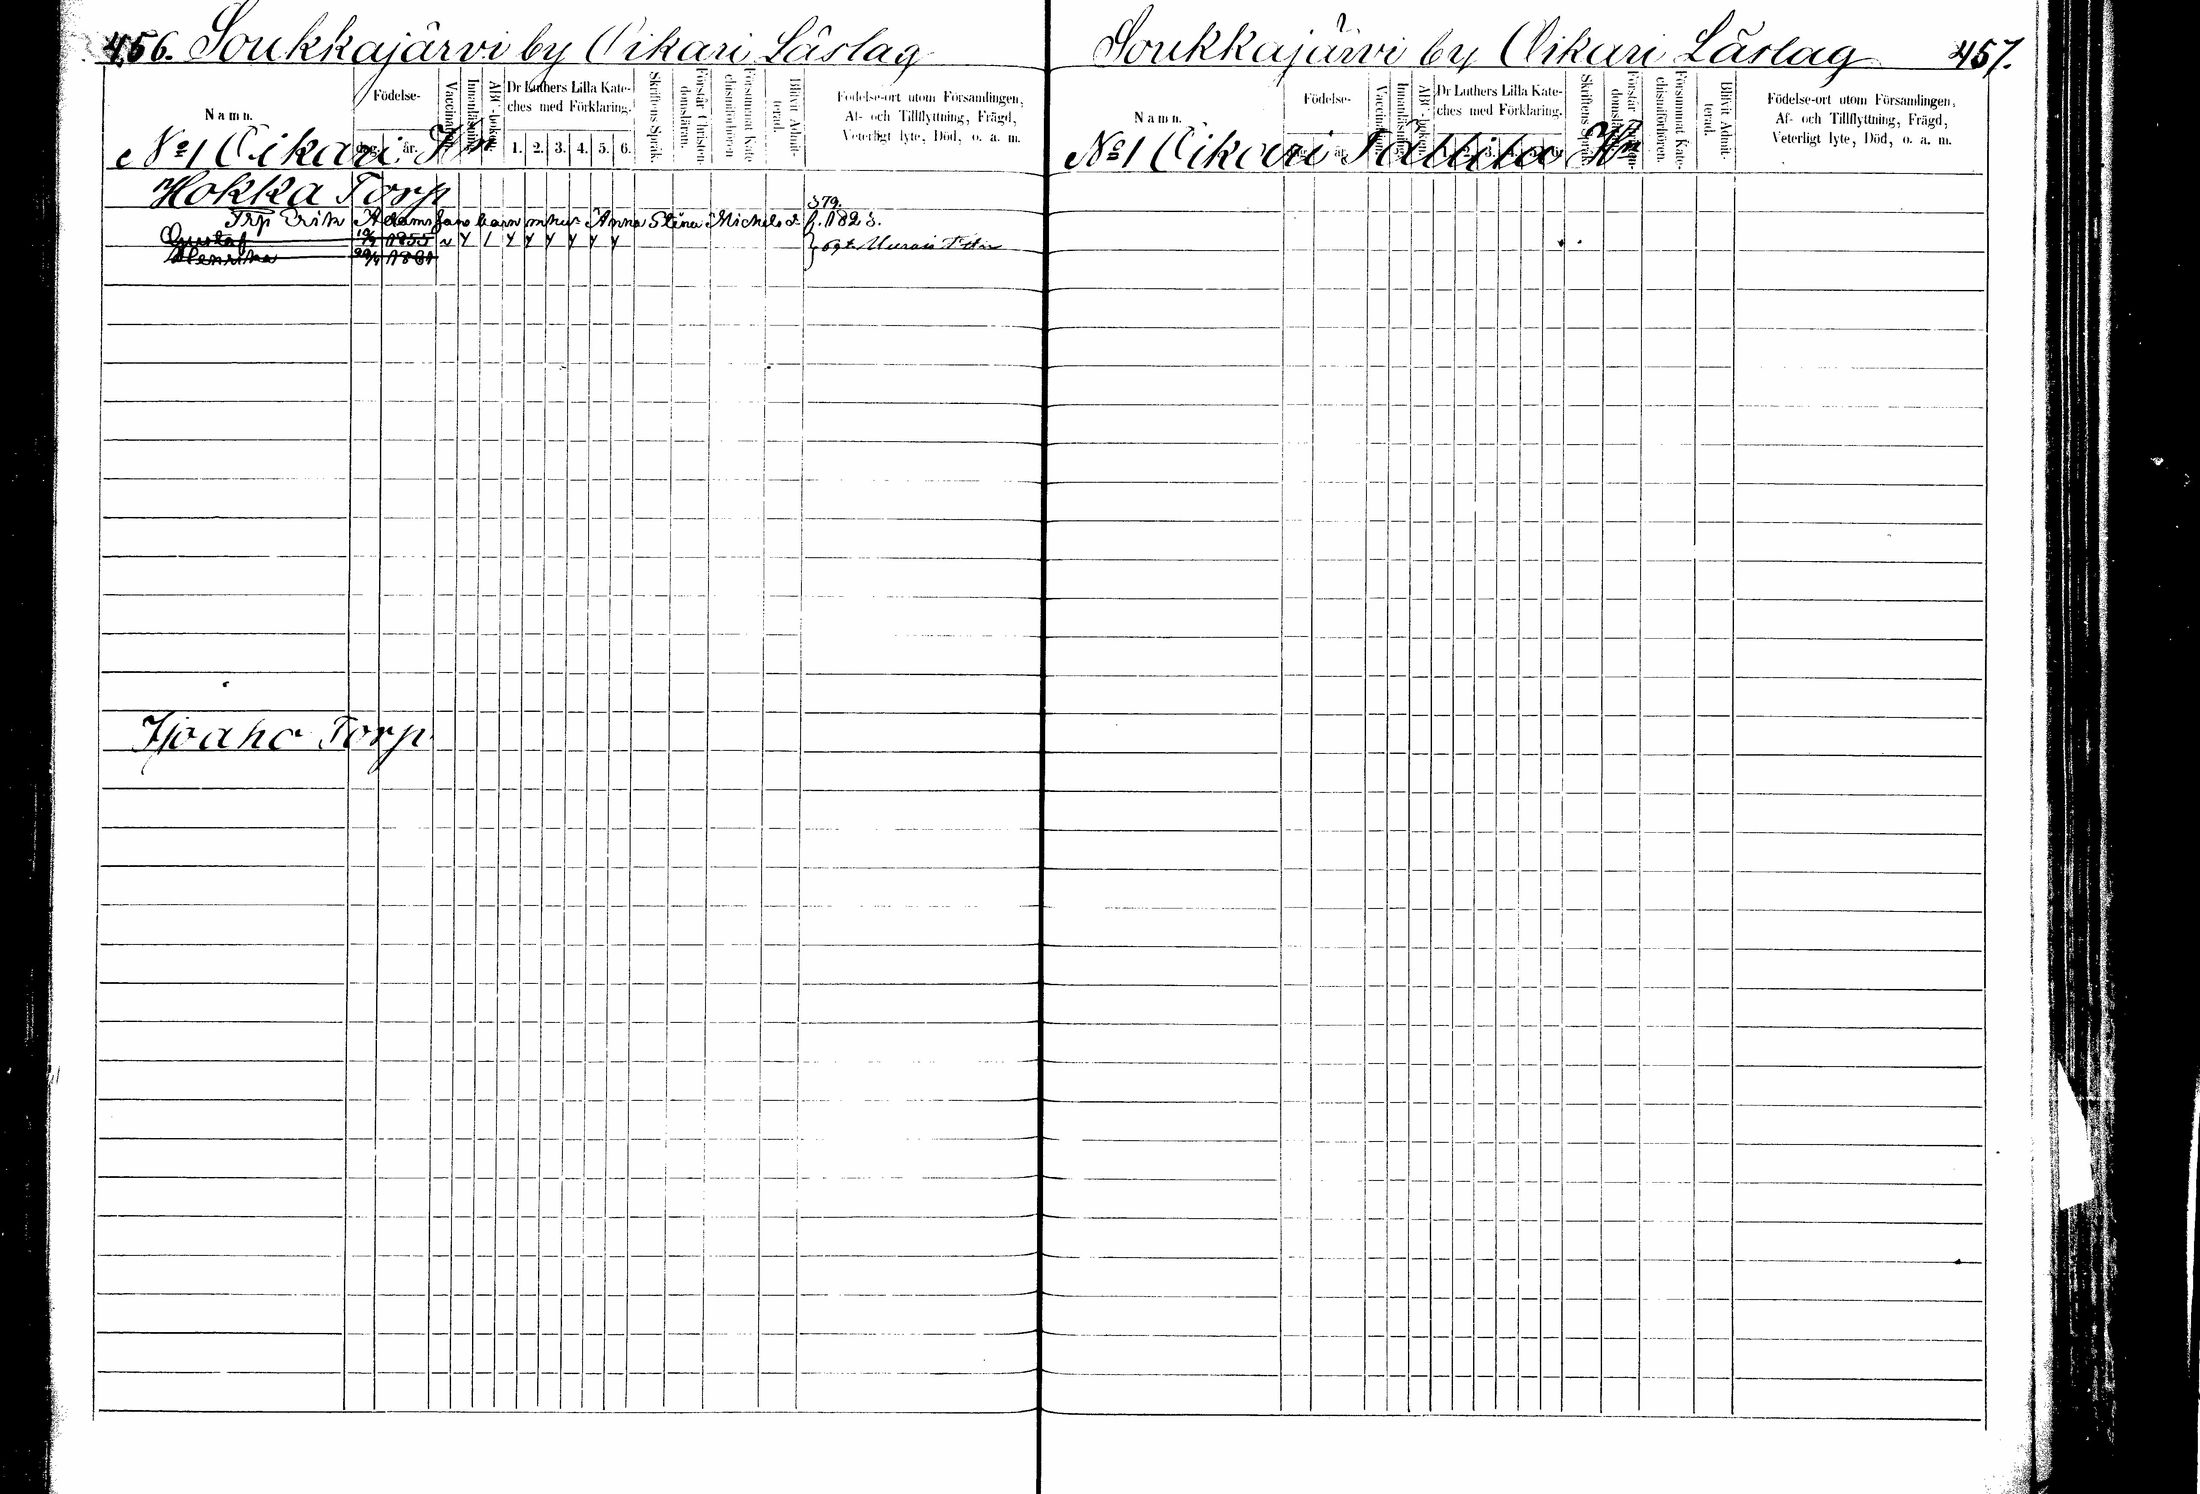 456. Soukkajärvi by Oikari Läslag
Namn.
Födelse-
dag. år.
Vaccination.
Innanläsning.
ABC-boken.
Dr Luthers Lilla Kate-
ches med Förklaring.
1. 2. 3. 4. 5. 6.
Skriftens Språk.
Förstår Christen-
domsläran.
Försummat Kate-
chismiförhören
Blifvit Admit-
terad.
Födelse-ort utom Församlingen,
Af- och Tillflyttning, Frägd,
Veterligt lyte, Död, o. a. m.
No 1 Oikari Hn
Hokka Torp
379.
Trp Erik Adamsson barn m hus Anna Stina Michels d. f. 1823.
Gustaf 1855
Henrika 1861
Ipaho Torp
Soukkajärvi by Oikari Läslag 457.
Namn.
Födelse-
år.
Vaccination.
Innanläsning.
ABC-boken.
Dr Luthers Lilla Kate-
ches med Förklaring.
Skriftens Språk.
Förstår Christen-
domsläran.
Försummat Kate-
chismiförhören.
Blifvit Admit-
terad.
Födelse-ort utom Församlingen,
Af- och Tillflyttning, Frägd,
Veterligt lyte, Död, o. a. m.
No 1 Oikari Hn